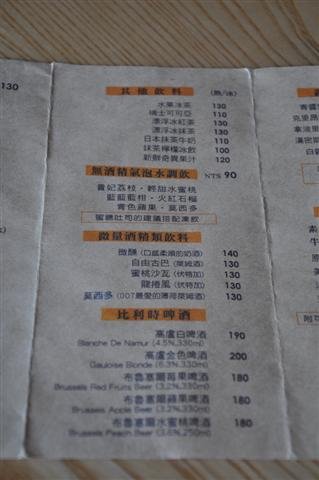 130
其他飲料 (熱/冰)
水果冰茶 130
瑞士可可亞 110
漂浮冰紅茶 130
漂浮冰抹茶 130
日本抹茶牛奶 110
抹茶檸檬冰飲 100
新鮮奇異果汁 120
無酒精氣泡水調飲 NT$ 90
貴妃荔枝・輕甜水蜜桃
藍藍藍柑・火紅石榴
青色蘋果・莫西多
蜜糖吐司的建議搭配凍飲
微量酒精類飲料
微醺 (口感柔順的奶酒) 140
自由古巴 (萊姆酒) 130
蜜桃沙瓦 (伏特加) 130
龍捲風 (伏特加) 130
莫西多 (007最愛的薄荷萊姆酒) 130
比利時啤酒
高盧白啤酒 190
Blanche De Namur (4.5%,330ml)
高盧金色啤酒 200
Gauloise Blonde (6.3%,330ml)
布魯塞爾莓果啤酒 180
Brussels Red Fruits Beer (3.2%,330ml)
布魯塞爾蘋果啤酒 180
Brussels Apple Beer (3.2%,330ml)
布魯塞爾水蜜桃啤酒 180
Brussels Peach Beer (3.6%,250ml)
130
青醬
克里
拿坡
漢密
素
附可